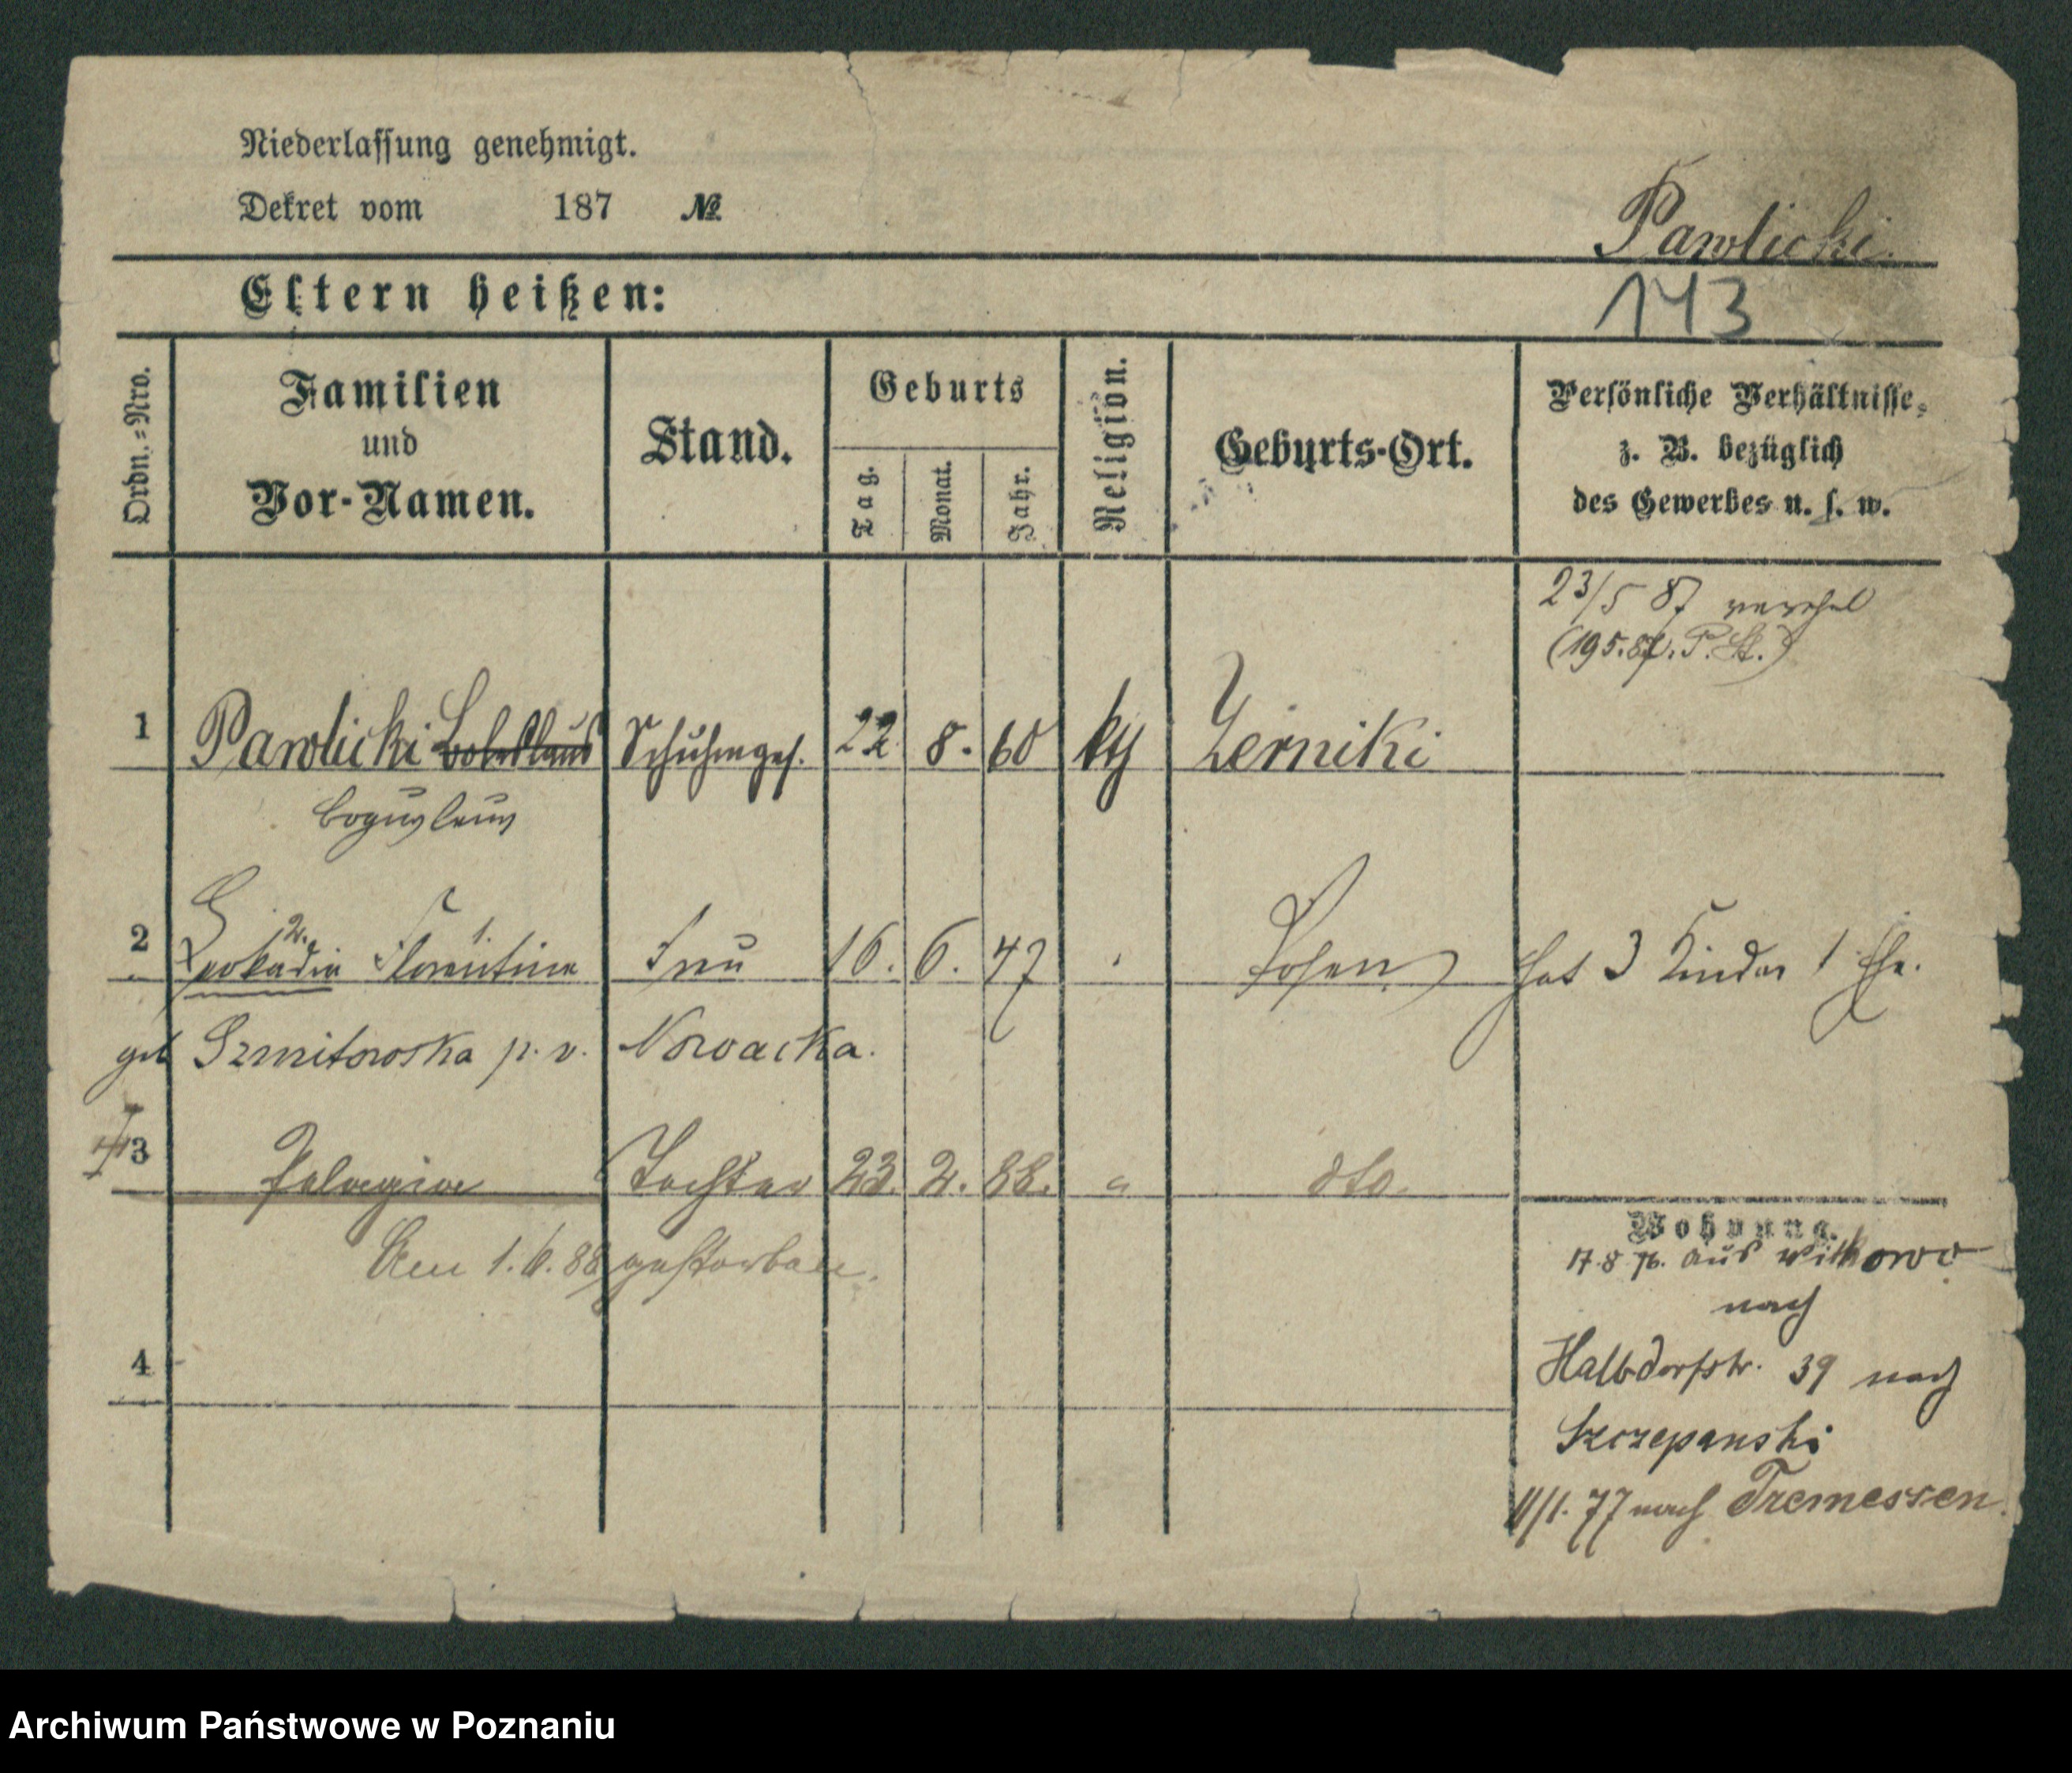 Niederlassung genehmigt.
Dekret vom 187 №
Pawlicki.
Eltern heißen:
143
Ordn.=Nro.
Familien
und
Vor-Namen.
Stand.
Geburts
Tag.
Monat.
Jahr.
Religion.
Geburts-Ort.
Persönliche Verhältnisse,
z. B. bezüglich
des Gewerbes u. s. w.
23/5 87
1 Pawlicki Boleslaus 22. 8. 60 Zerniki
Boguslaus
2 Leokadia 2. Florentina 1. Frau 16. 6. 47 Posen hat 3 Kinder 1 Ehe.
geb Szmitowska p. v. Nowacka.
3 Pelagia Tochter 23. 2. 88. " dto.
Am 1. 6. 88 gestorben.
Wohnung.
17. 8 76. aus Witkowo
nach
4
Halbdorfstr. 39 nach
Szczepanski
11/1. 77 nach Tremessen.
Archiwum Państwowe w Poznaniu